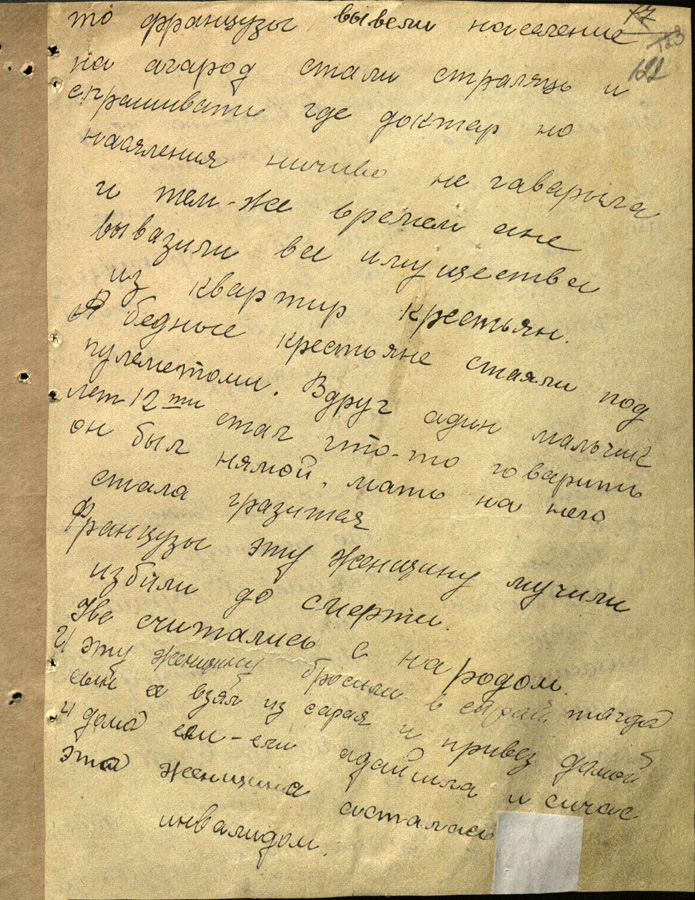 17
183
181
то французы вывели население
на агарод стали стралять и
спрашивати где доктар но
насяления ничиво не гаварила
и тем-же времем ане
вывазили все имущества
из квартир крестьян.
А бедные крестьяне стаяли под
пулеметами. Вдруг один мальчик
лет 12 ти стал что-то говарить
он был нямой, мать на него
стала гразится
Французы эту женщину мучили
избили до смерти.
Не считались с народом.
И эту женщину бросили в сарай, тагда
сын ее взял из сарая и привез домой
И дома еле-еле адайшла и сичас
эта женщина асталась
инвалидом.